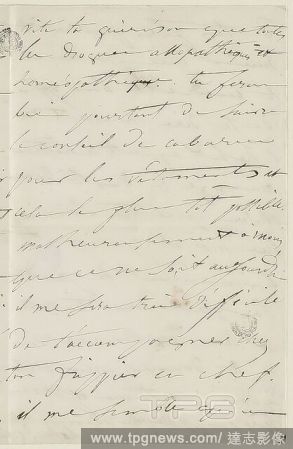 vite ta guérison que toutes
les drogues allopathiques et
homéopathiques. tu feras
bien pourtant de suivre
le conseil de
pour les vêtements et
cela le plus tôt possible.
malheureusement à moins
que ce ne soit aujourd'hui
il me sera très difficile
de t'accompagner chez
ton fripier en chef.
il me semble
TPG
www.tpgnews.com / 達志影像